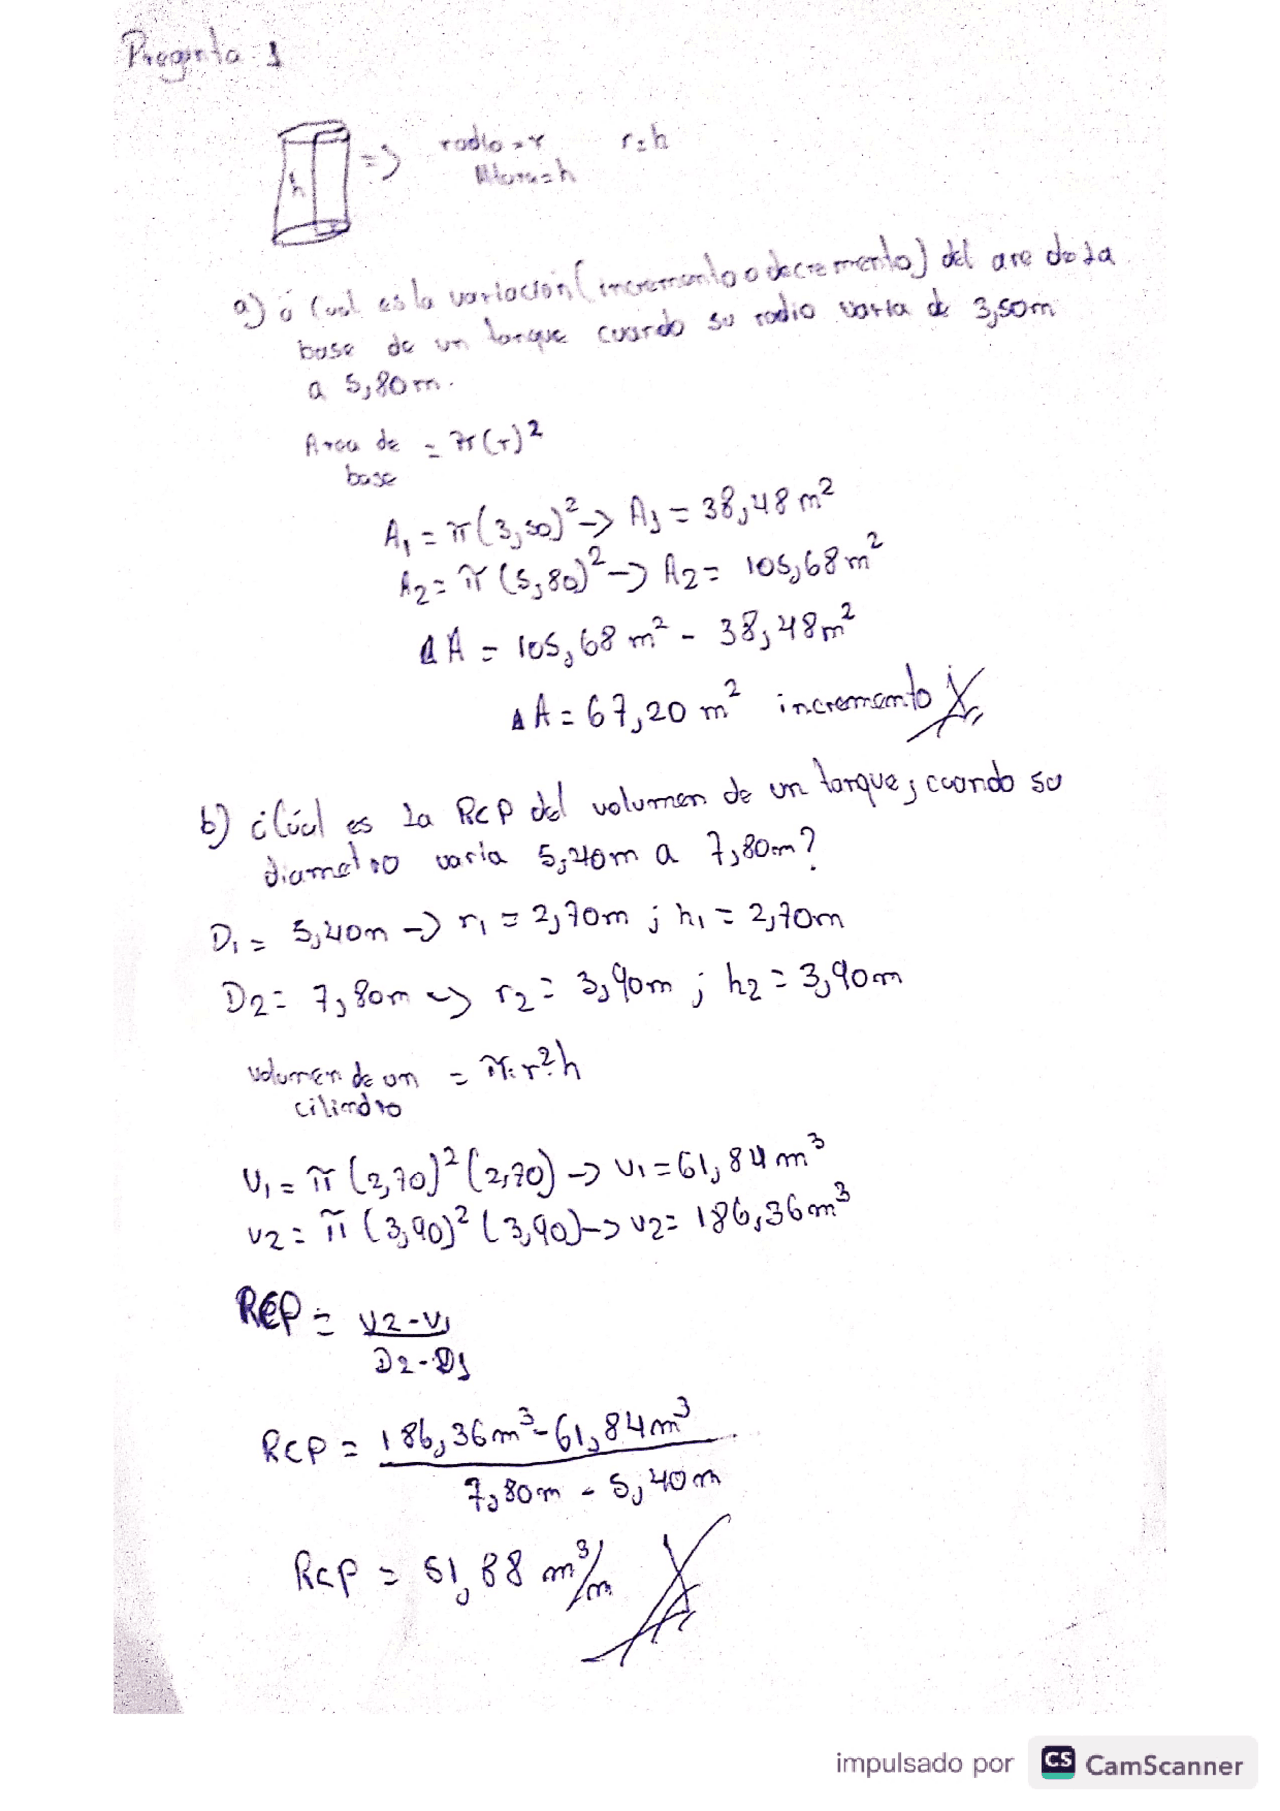 Pregunta 1
h
=> radio = r r = h
Altura = h
a) ¿Cual es la variación (incremento o decremento) del are de la
base de un tanque cuando su radio varia de 3,50m
a 5,80m.
Area de = π(r)²
base
A₁ = π(3,50)² -> A₁ = 38,48 m²
A₂ = π(5,80)² -> A₂ = 105,68 m²
ΔA = 105,68 m² - 38,48 m²
ΔA = 67,20 m² incremento
b) ¿Cúal es la RCP del volumen de un tanque, cuando su
diametro varia 5,40m a 7,80m?
D₁ = 5,40m -> r₁ = 2,70m ; h₁ = 2,70m
D₂ = 7,80m -> r₂ = 3,90m ; h₂ = 3,90m
volumen de un = π·r²·h
cilindro
V₁ = π(2,70)²(2,70) -> V₁ = 61,84 m³
V₂ = π(3,90)²(3,90) -> V₂ = 186,36 m³
RCP = V₂-V₁
D₂-D₁
RCP = 186,36 m³ - 61,84 m³
7,80m - 5,40m
RCP = 51,88 m³/m
impulsado por CS CamScanner